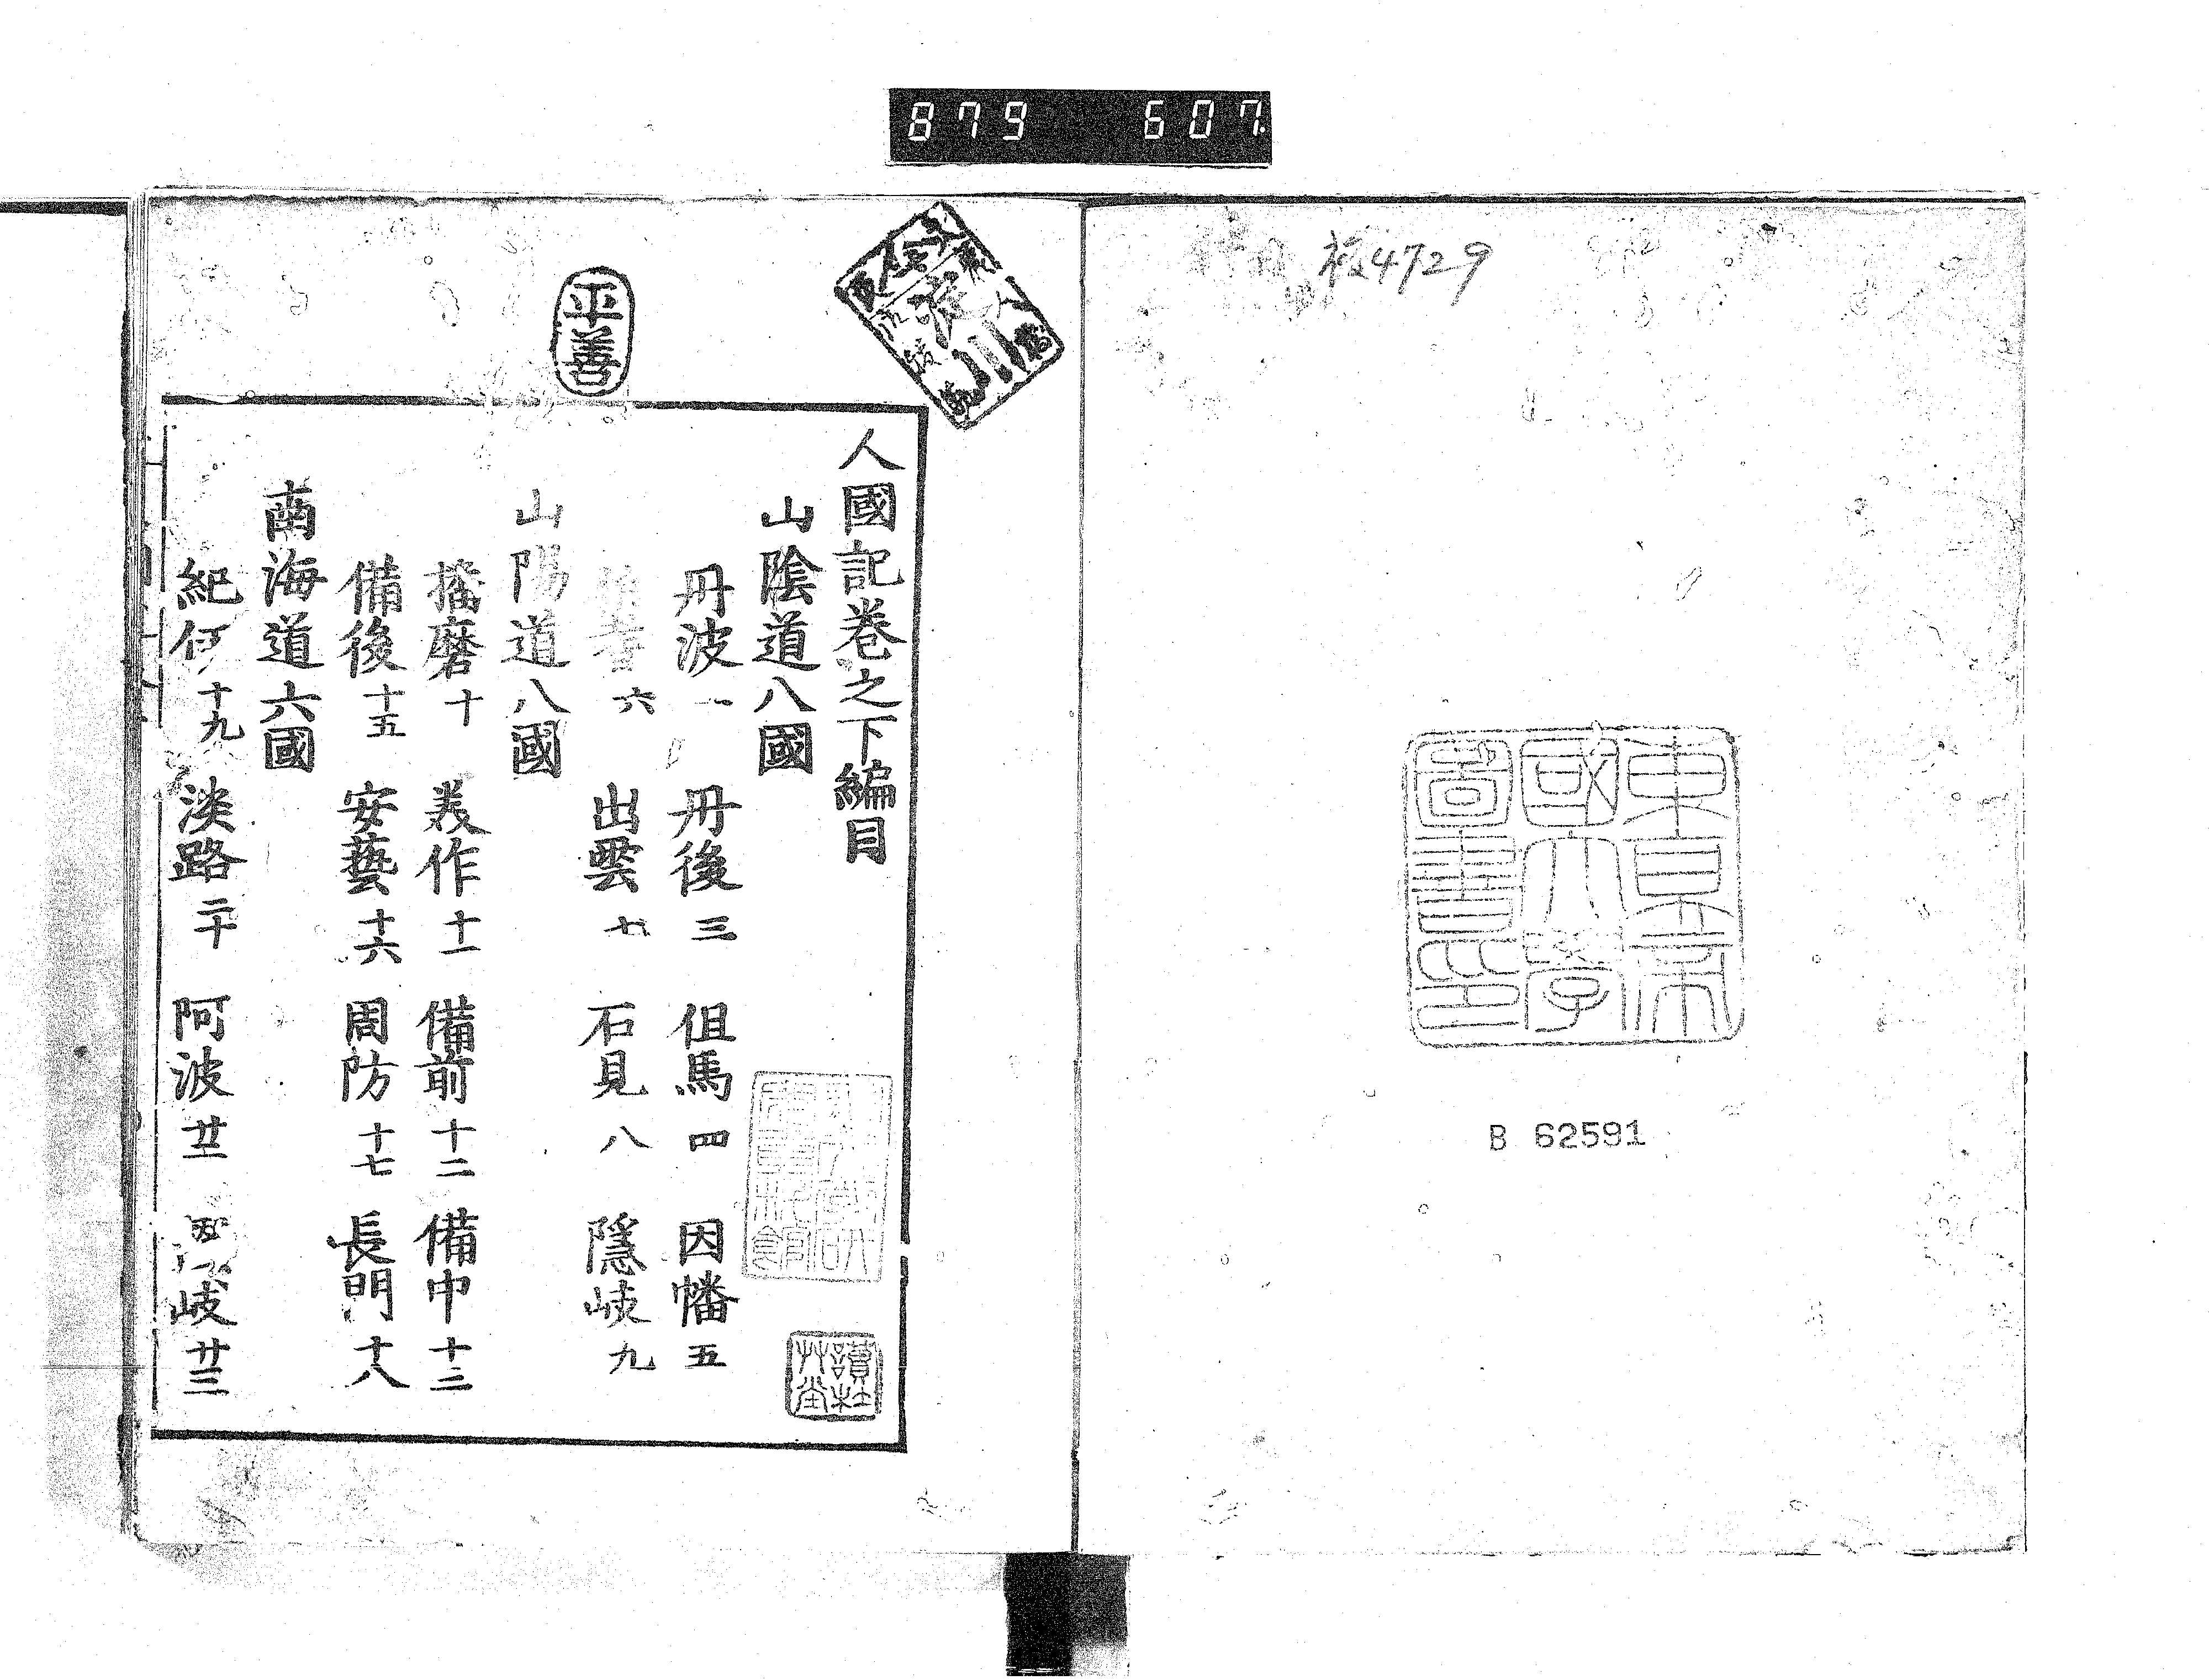 879 607
祢4729
東京帝
國大學
圖書印
B 62591
人國記巻之下編目
山陰道八國
丹波 一 丹後 三 但馬 四 因幡 五
耆 六 出雲 七 石見 八 隱岐 九
山陽道八國
播磨 十 美作 十一 備前 十二 備中 十三
備後 十五 安藝 十六 周防 十七 長門 十八
南海道六國
紀伊 十九 淡路 二十 阿波 廿一 岐 廿三
平善
渡
讀杜
艸堂